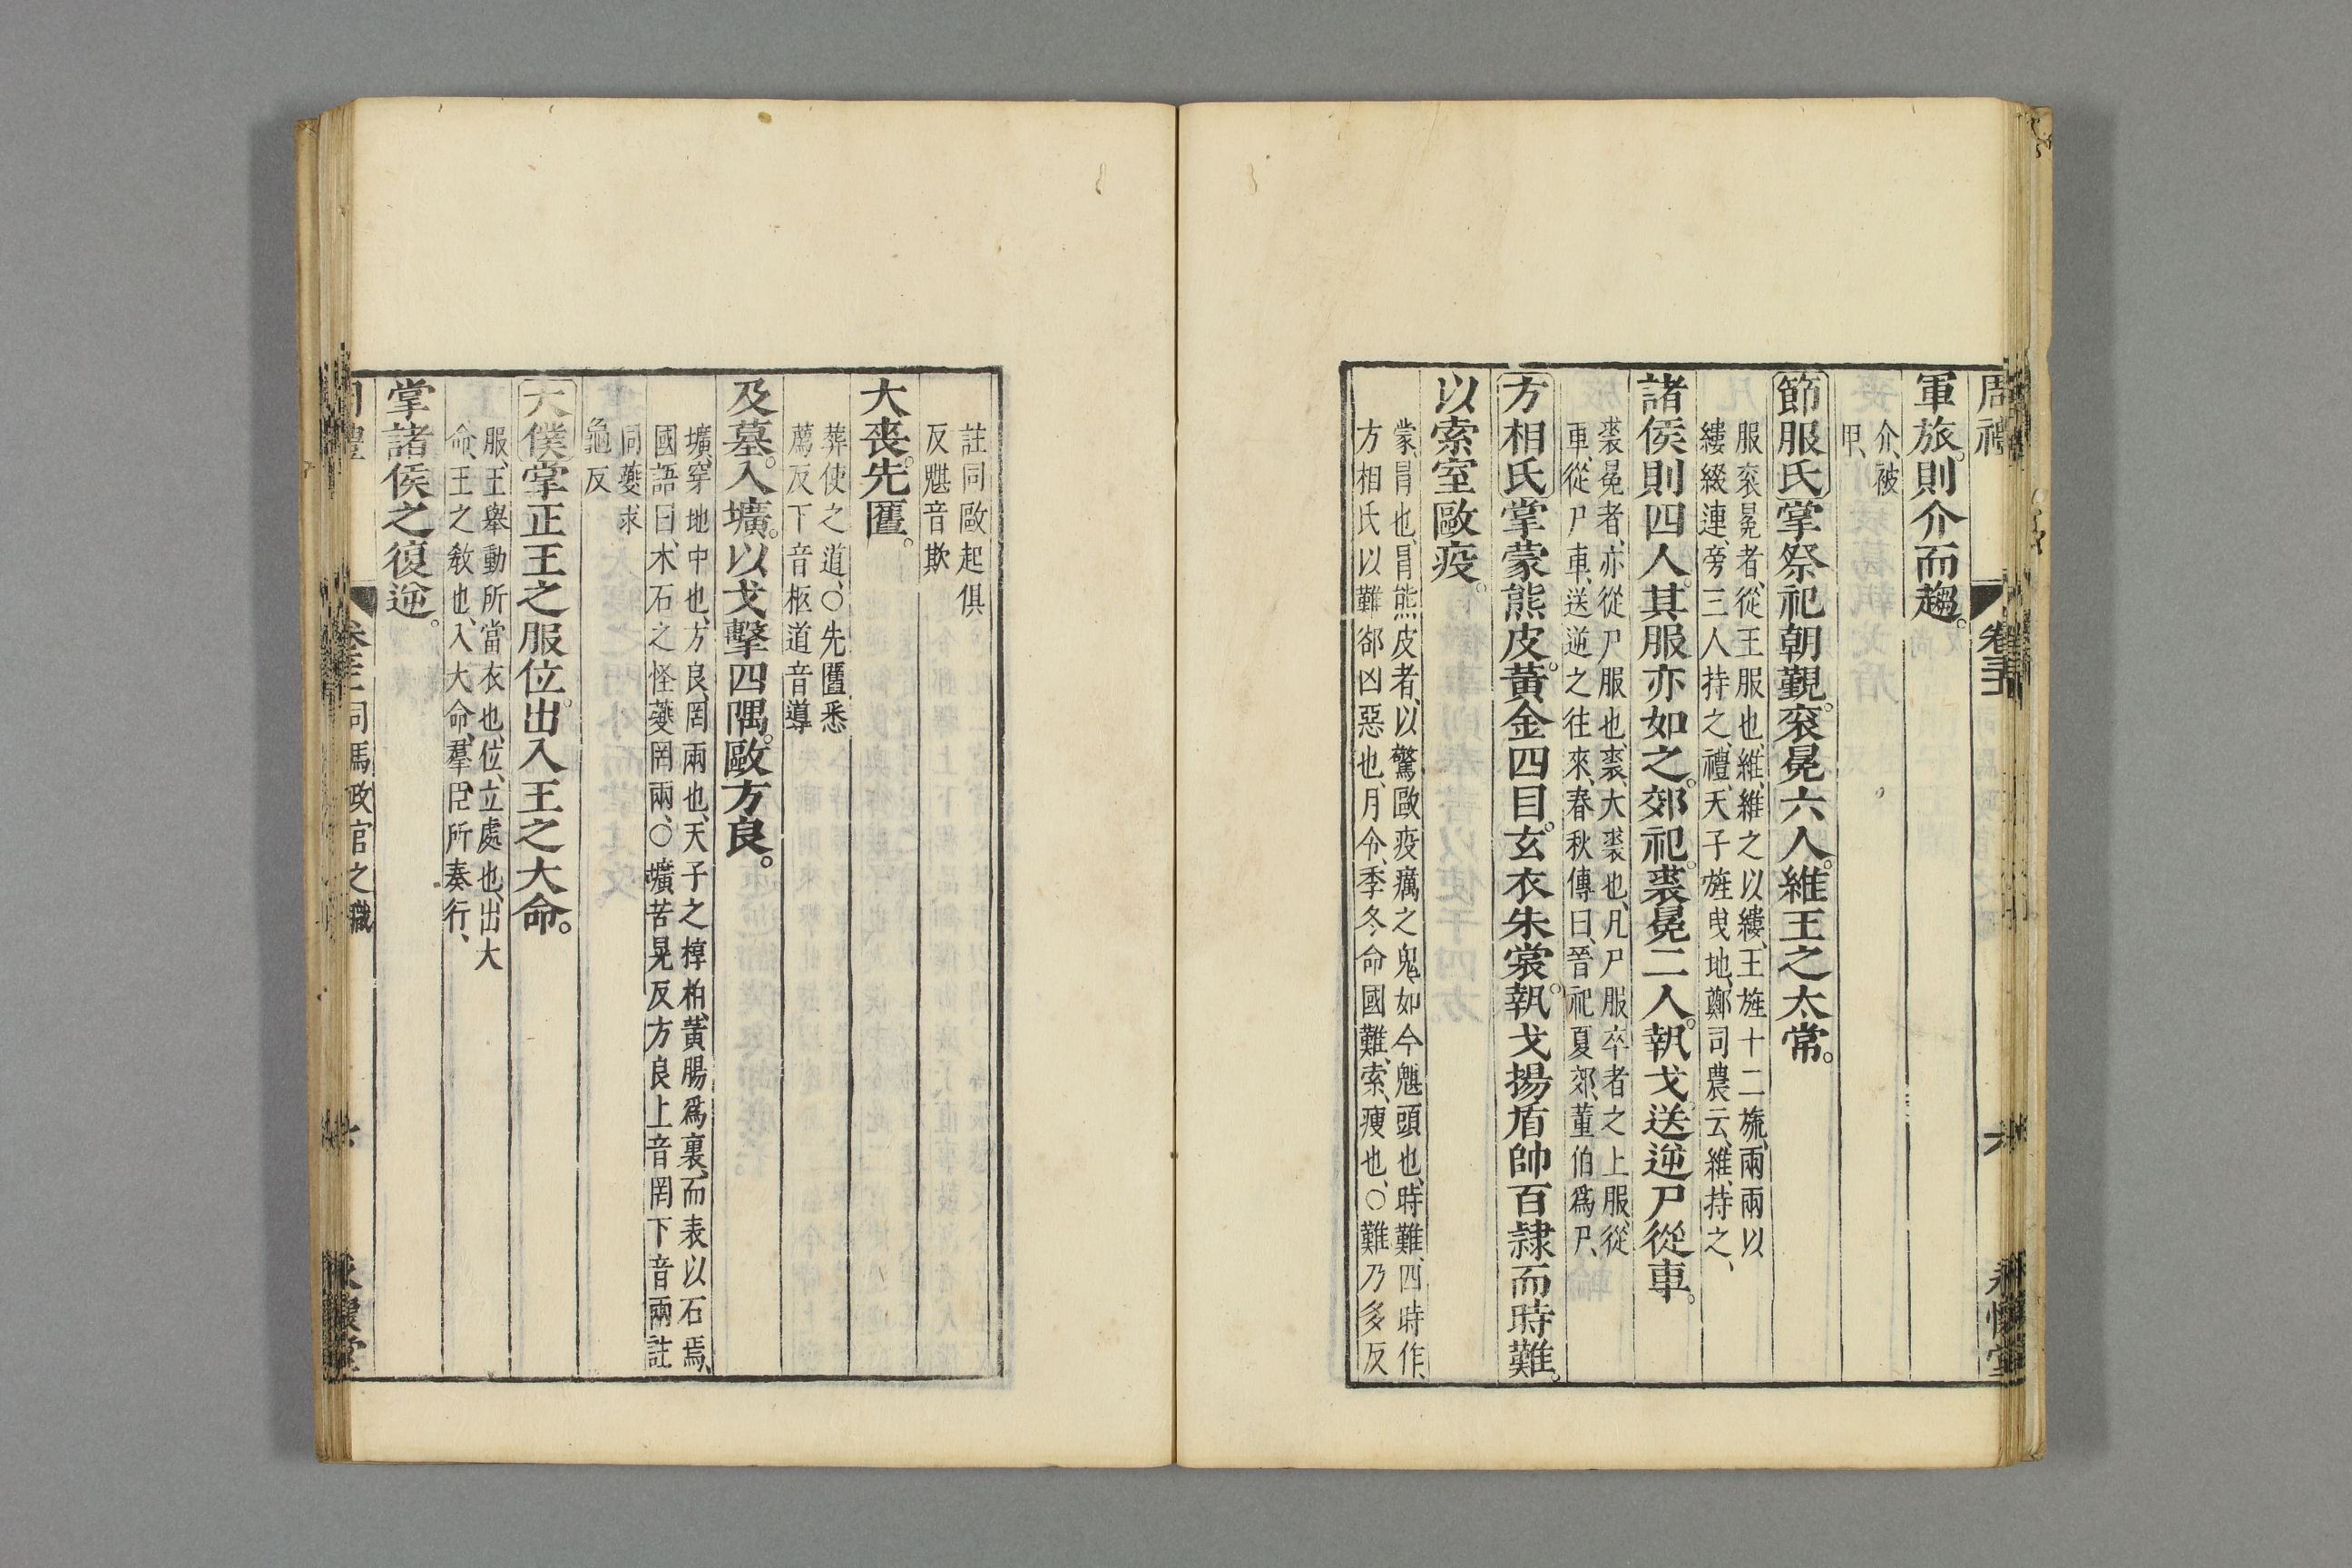 周禮 卷三十一 六 永懷堂
軍旅則介而趨。
介、被
甲、
節服氏掌祭祀朝覲。袞冕六人。維王之太常。
服袞冕者、從王服也、維、維之以縷、王旌十二旒、兩兩以
縷綴連、旁三人持之、禮、天子旌曳地、鄭司農云、維、持之、
諸侯則四人。其服亦如之。郊祀。裘冕二人。執戈。送逆尸從車。
裘冕者、亦從尸服也、裘、大裘也、凡尸服卒者之上服、從
車、從尸車、送逆之往來、春秋傳曰、晉祀夏郊、董伯爲尸、
方相氏掌蒙熊皮。黃金四目。玄衣朱裳。執戈揚盾帥百隷而時難。
以索室毆疫。
蒙、冒也、冒熊皮者、以驚毆疫癘之鬼、如今魌頭也、時難、四時作、
方相氏以難郤凶惡也、月令、季冬、命國難、索、瘦也、○難乃多反
註同毆起俱
反魌音欺
大喪。先匶。
葬使之道、○先匶悉
薦反下音柩道音導
及墓。入壙。以戈擊四隅。毆方良。
壙、穿地中也、方良、罔兩也、天子之椁柏、黃腸爲裏、而表以石焉、
國語曰、木石之怪夔罔兩、○壙苦晃反方良上音罔下音兩註
同夔求
龜反
大僕掌正王之服位。出入王之大命。
服、王舉動所當衣也、位、立處也、出大
命、王之敎也、入大命、羣臣所奏行、
掌諸侯之復逆。
司馬政官之職